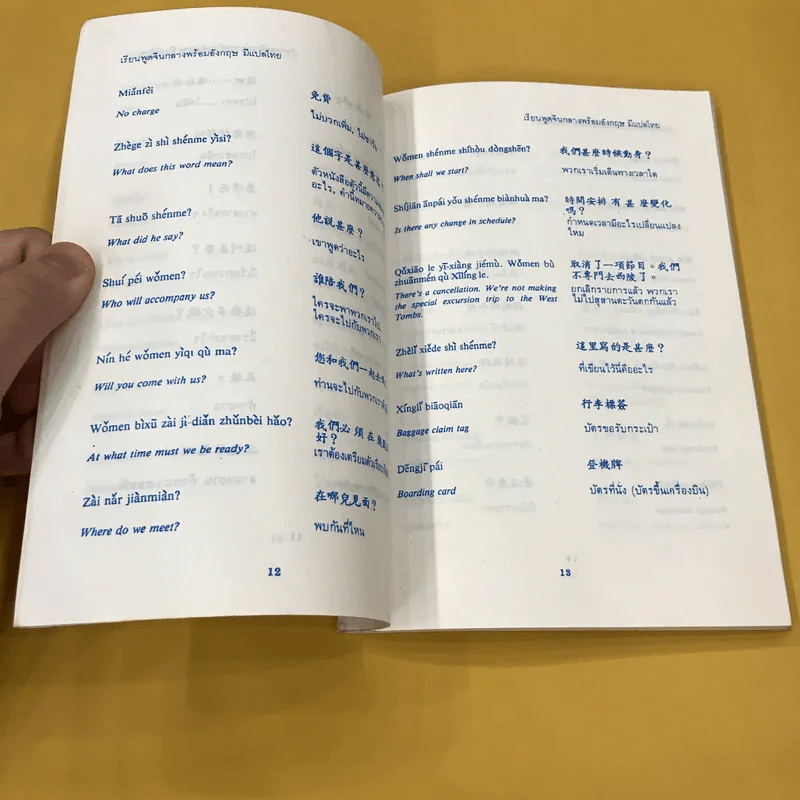 เรียนพูดจีนกลางพร้อมอังกฤษ มีแปลไทย
Miǎnfèi
免費
No charge
ไม่บวกเพิ่ม,
Zhège zì shì shénme yìsi?
這個字是甚麽意思?
What does this word mean?
อะไร,
Tā shuō shénme?
他説甚麽?
What did he say?
เขาพูดว่าอะไร
Shuí péi wǒmen?
誰陪我們?
Who will accompany us?
ใครจะพาพวกเราไป,
ใครจะไปกับพวกเรา
Nín hé wǒmen yìqǐ qù ma?
您和我們一起去
Will you come with us?
ท่านจะไปกับพวกเรา
Wǒmen bìxū zài jǐ diǎn zhǔnbèi hǎo?
我們必須在
好?
At what time must we be ready?
Zài nǎr jiànmiàn?
在哪兒見面?
Where do we meet?
พบกันที่ไหน
12
เรียนพูดจีนกลางพร้อมอังกฤษ มีแปลไทย
Wǒmen shénme shíhòu dòngshēn?
我們甚麽時候動身?
When shall we start?
พวกเราเริ่มเดินทางเวลาใด
Shíjiān ānpái yǒu shénme biànhuà ma?
時間安排 有 甚 麽變化
嗎?
Is there any change in schedule?
กำหนดเวลามีอะไรเปลี่ยนแปลง
ไหม
Qǔxiāo le yī-xiàng jiémù. Wǒmen bù
取消了一項節目。我們
zhuānmén qù Xīlíng le.
不專門去西陵了。
There's a cancellation. We're not making
ยกเลิกรายการแล้ว พวกเรา
the special excursion trip to the West
ไม่ไปสุสานตะวันตกกันแล้ว
Tombs.
Zhèlǐ xiěde shì shénme?
這里寫的是甚麽?
What's written here?
ที่เขียนไว้นี่คืออะไร
Xínglǐ biāoqiān
行李標簽
Baggage claim tag
บัตรขอรับกระเป๋า
Dēngjī pái
登機牌
Boarding card
บัตรที่นั่ง (บัตรขึ้นเครื่องบิน)
13